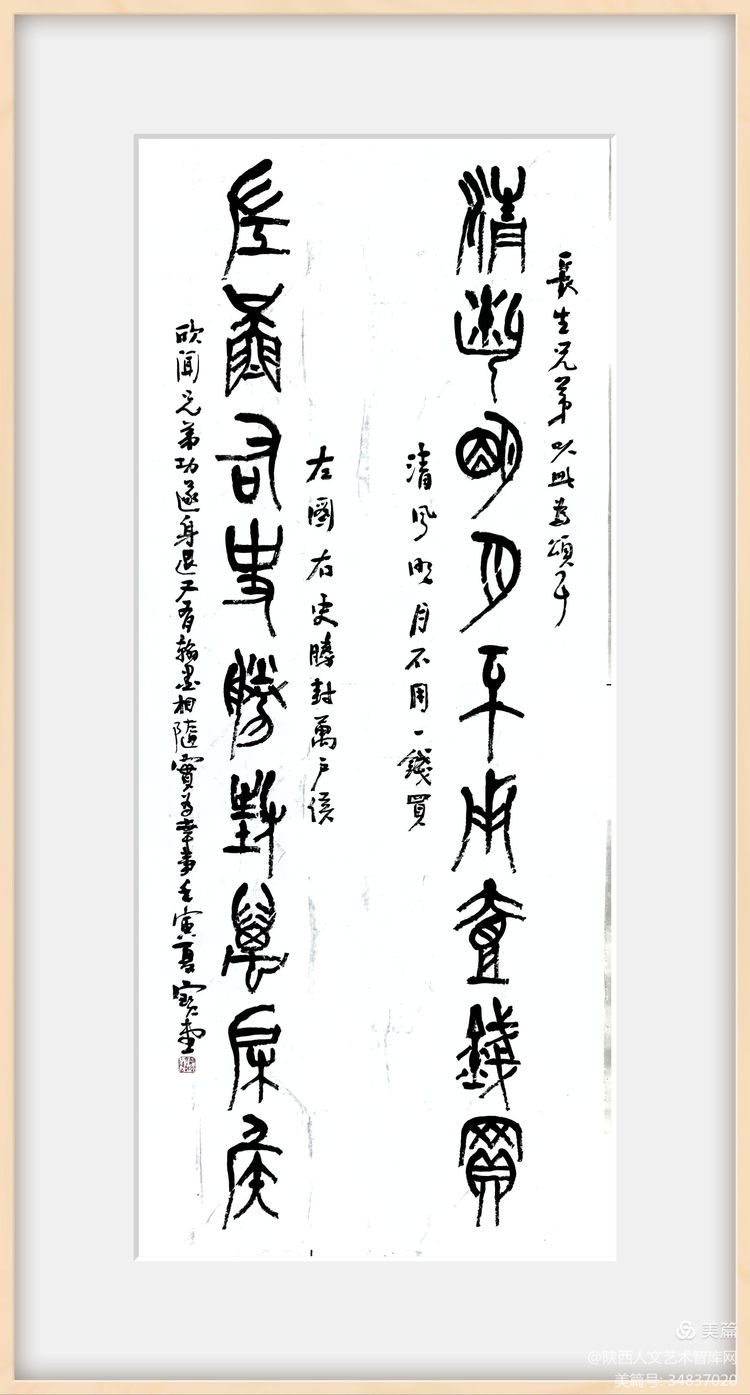 長生兄弟以此為頌
清風明月不用壹錢買
清風明月不用一錢買
左圖右史勝封萬戶侯
左圖右史勝封萬戶侯
欣聞兄弟功遂身退又有翰墨相隨實為幸事壬寅夏寶
美篇
@陕西人文艺术智库网
美篇号: 34837020